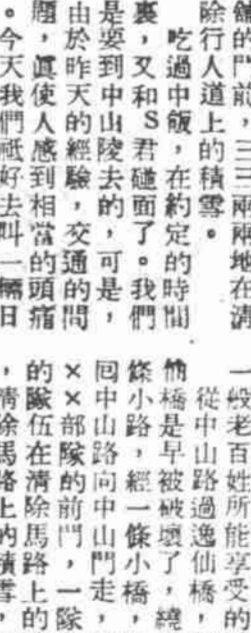 的門前，三三兩兩地在清
除行人道上的積雪。
吃過中飯，在約定的時間
裏，又和S君碰面了。我們
是要到中山陵去的，可是，
由於昨天的經驗，交通的問
題，眞使人感到相當的頭痛
。今天我們祗好去叫一輛日
一般老百姓所能享受的
從中山路過逸仙橋，
仙橋是早被破壞了，繞
條小路，經一條小橋，
囘中山路向中山門走，
××部隊的前門，一隊
的隊伍在清除馬路上的
，清除馬路上的積雪，